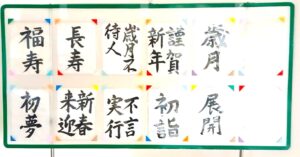 福寿
長寿
歳月不
待人
謹賀
新年
歳月
初夢
新春
来迎
不言
実行
初詣
展開